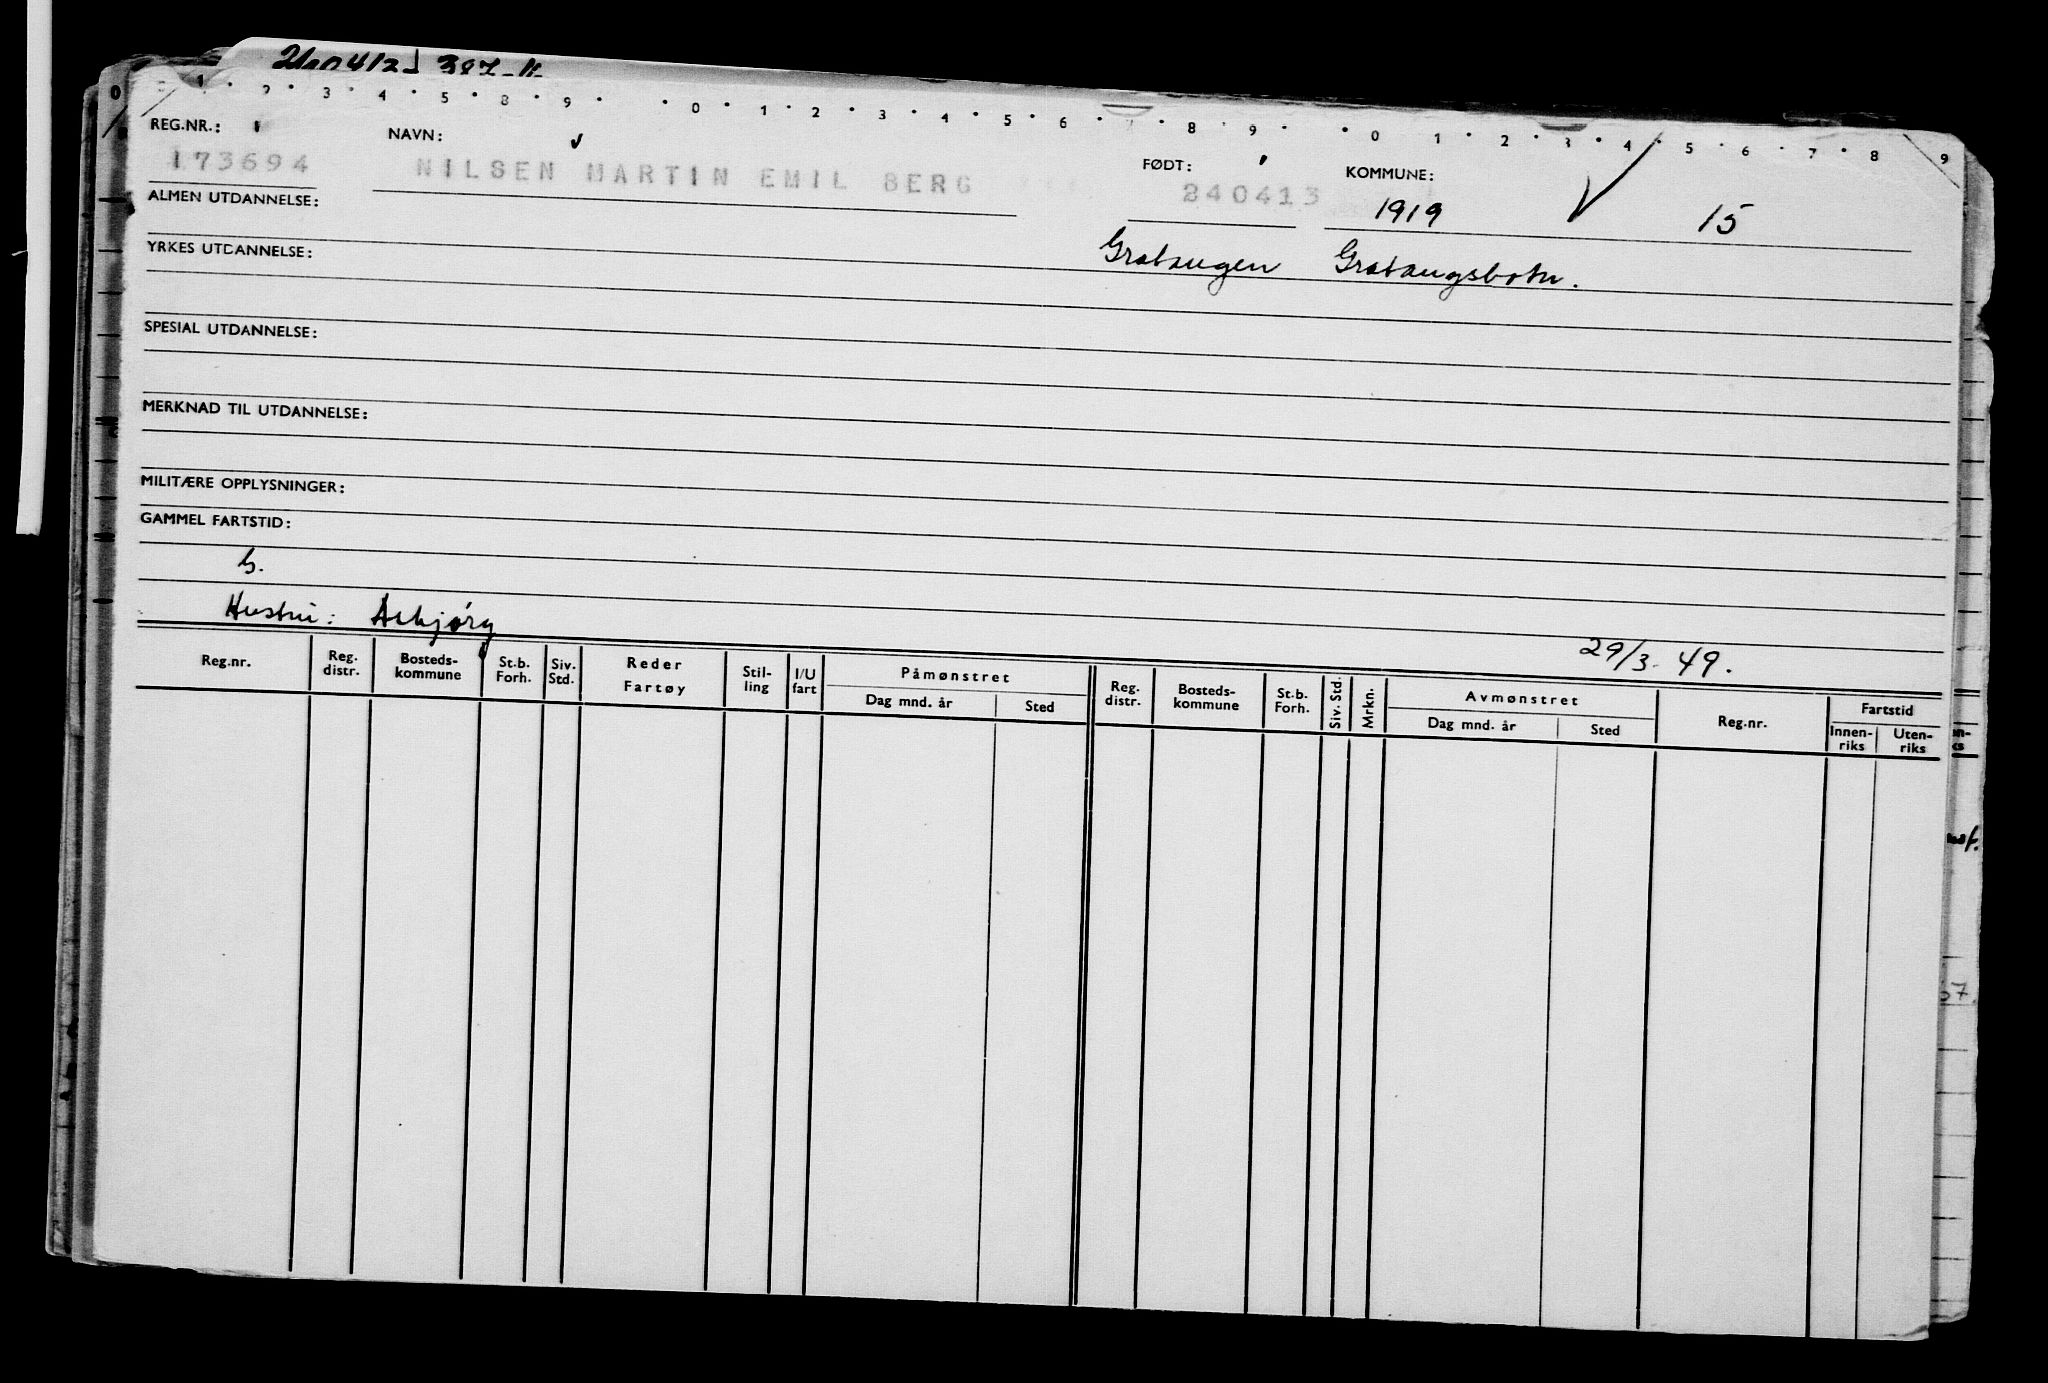 0 1 2 3 4 5 8 9 0 1 2 3 4 5 6 7 8 9 0 1 2 3 4 5 6 7 8 9
REG.NR.: NAVN: FØDT: KOMMUNE:
173694 NILSEN MARTIN EMIL BERG 240413 1919 15
ALMEN UTDANNELSE:
Gratangen Gratangsbotn.
YRKES UTDANNELSE:
SPESIAL UTDANNELSE:
MERKNAD TIL UTDANNELSE:
MILITÆRE OPPLYSNINGER:
GAMMEL FARTSTID:
Hustru: Asbjørg
29/3. 49.
Reg.nr. Reg. distr. Bosteds-kommune St.b. Forh. Siv. Std. Reder Fartøy Stil-ling I/U fart Påmønstret Dag mnd. år Sted Reg. distr. Bosteds-kommune St.b. Forh. Siv. Std. Mrkn. Avmønstret Dag mnd. år Sted Reg.nr. Fartstid Innen-riks Uten-riks